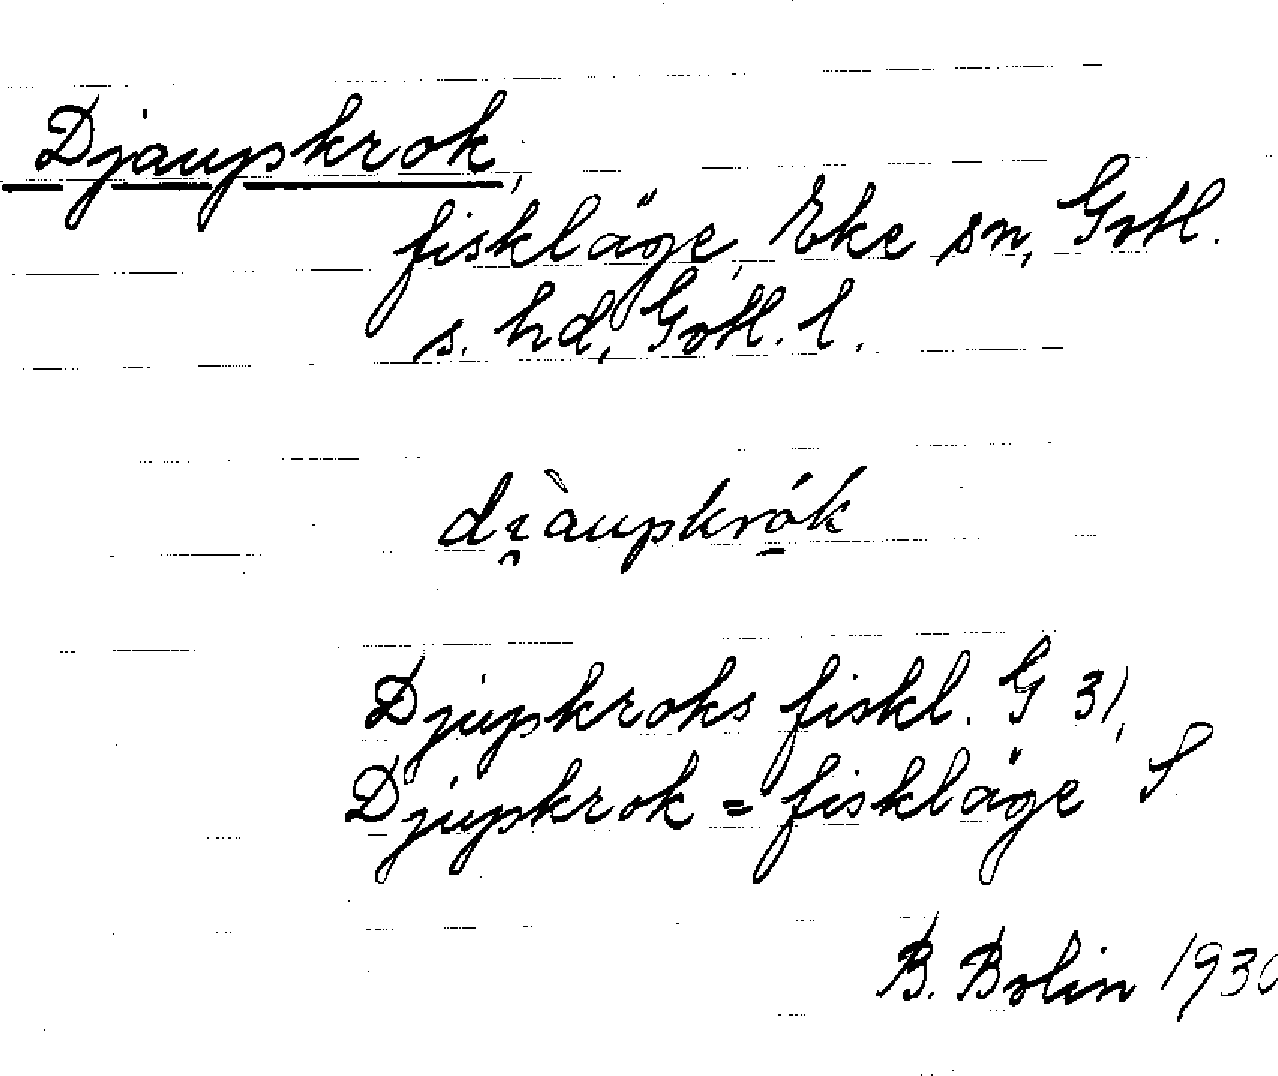 Djaupkrok,
fiskläge, Eke sn, Gotl.
s. hd, Gotl. l.
di̯àupkró̠k
Djupkroks fiskl. G 31,
Djupkrok = fiskläge S
B. Bolin 1930